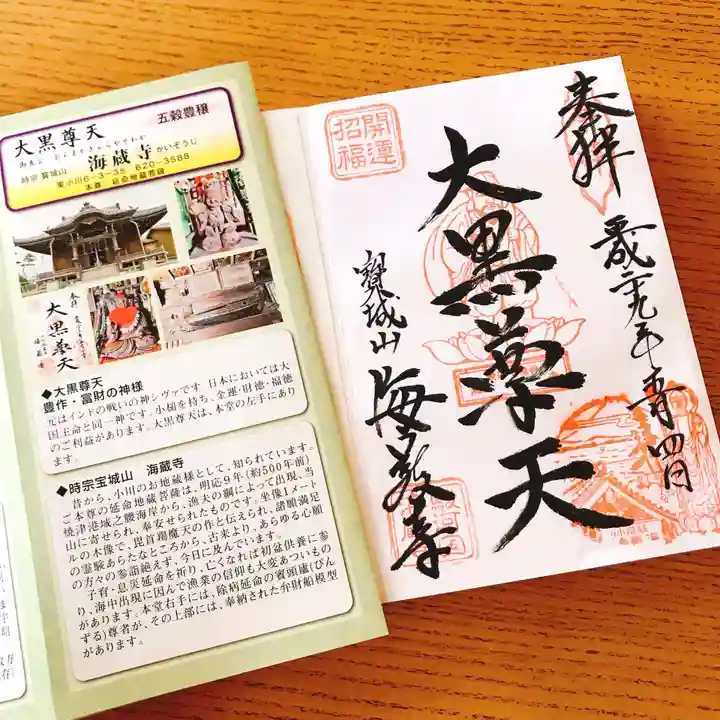 五穀豊穣
大黒尊天
海蔵寺 かいぞうじ
時宗 宝城山
東小川6-3-35 620-3588
本尊 延命地蔵菩薩
大黒尊天
◆大黒尊天
豊作・富財の神様
元はインドの戦いの神シヴァです 日本においては大
国主命と同一神です。小槌を持ち、金運・財徳・福徳
のご利益があります。大黒尊天は、本堂の左手にあり
ます。
◆時宗宝城山 海蔵寺
昔から、小川のお地蔵様として、知られています。
ご本尊の延命地蔵菩薩は、明応9年(約500年前)
焼津港城之腰海岸から、漁夫の網によって出現、当
山に寄せられ、奉安せられたものです。坐像1メート
ルの木像で、毘首羯魔天の作と伝えられ、諸願満足
の霊験あらたなところから、古来より、あらゆる心願
の方々の参詣絶えず、今日に及んでいます。
子育・息災延命を祈り、亡くなれば初盆供養に参
り、海中出現に因んで漁業の信仰も大変あついもの
があります。本堂右手には、除病延命の賓頭盧(びん
ずる)尊者が、その上部には、奉納された弁財船模型
があります。
奉拝
開運
招福
大黒尊天
寳城山 海蔵寺